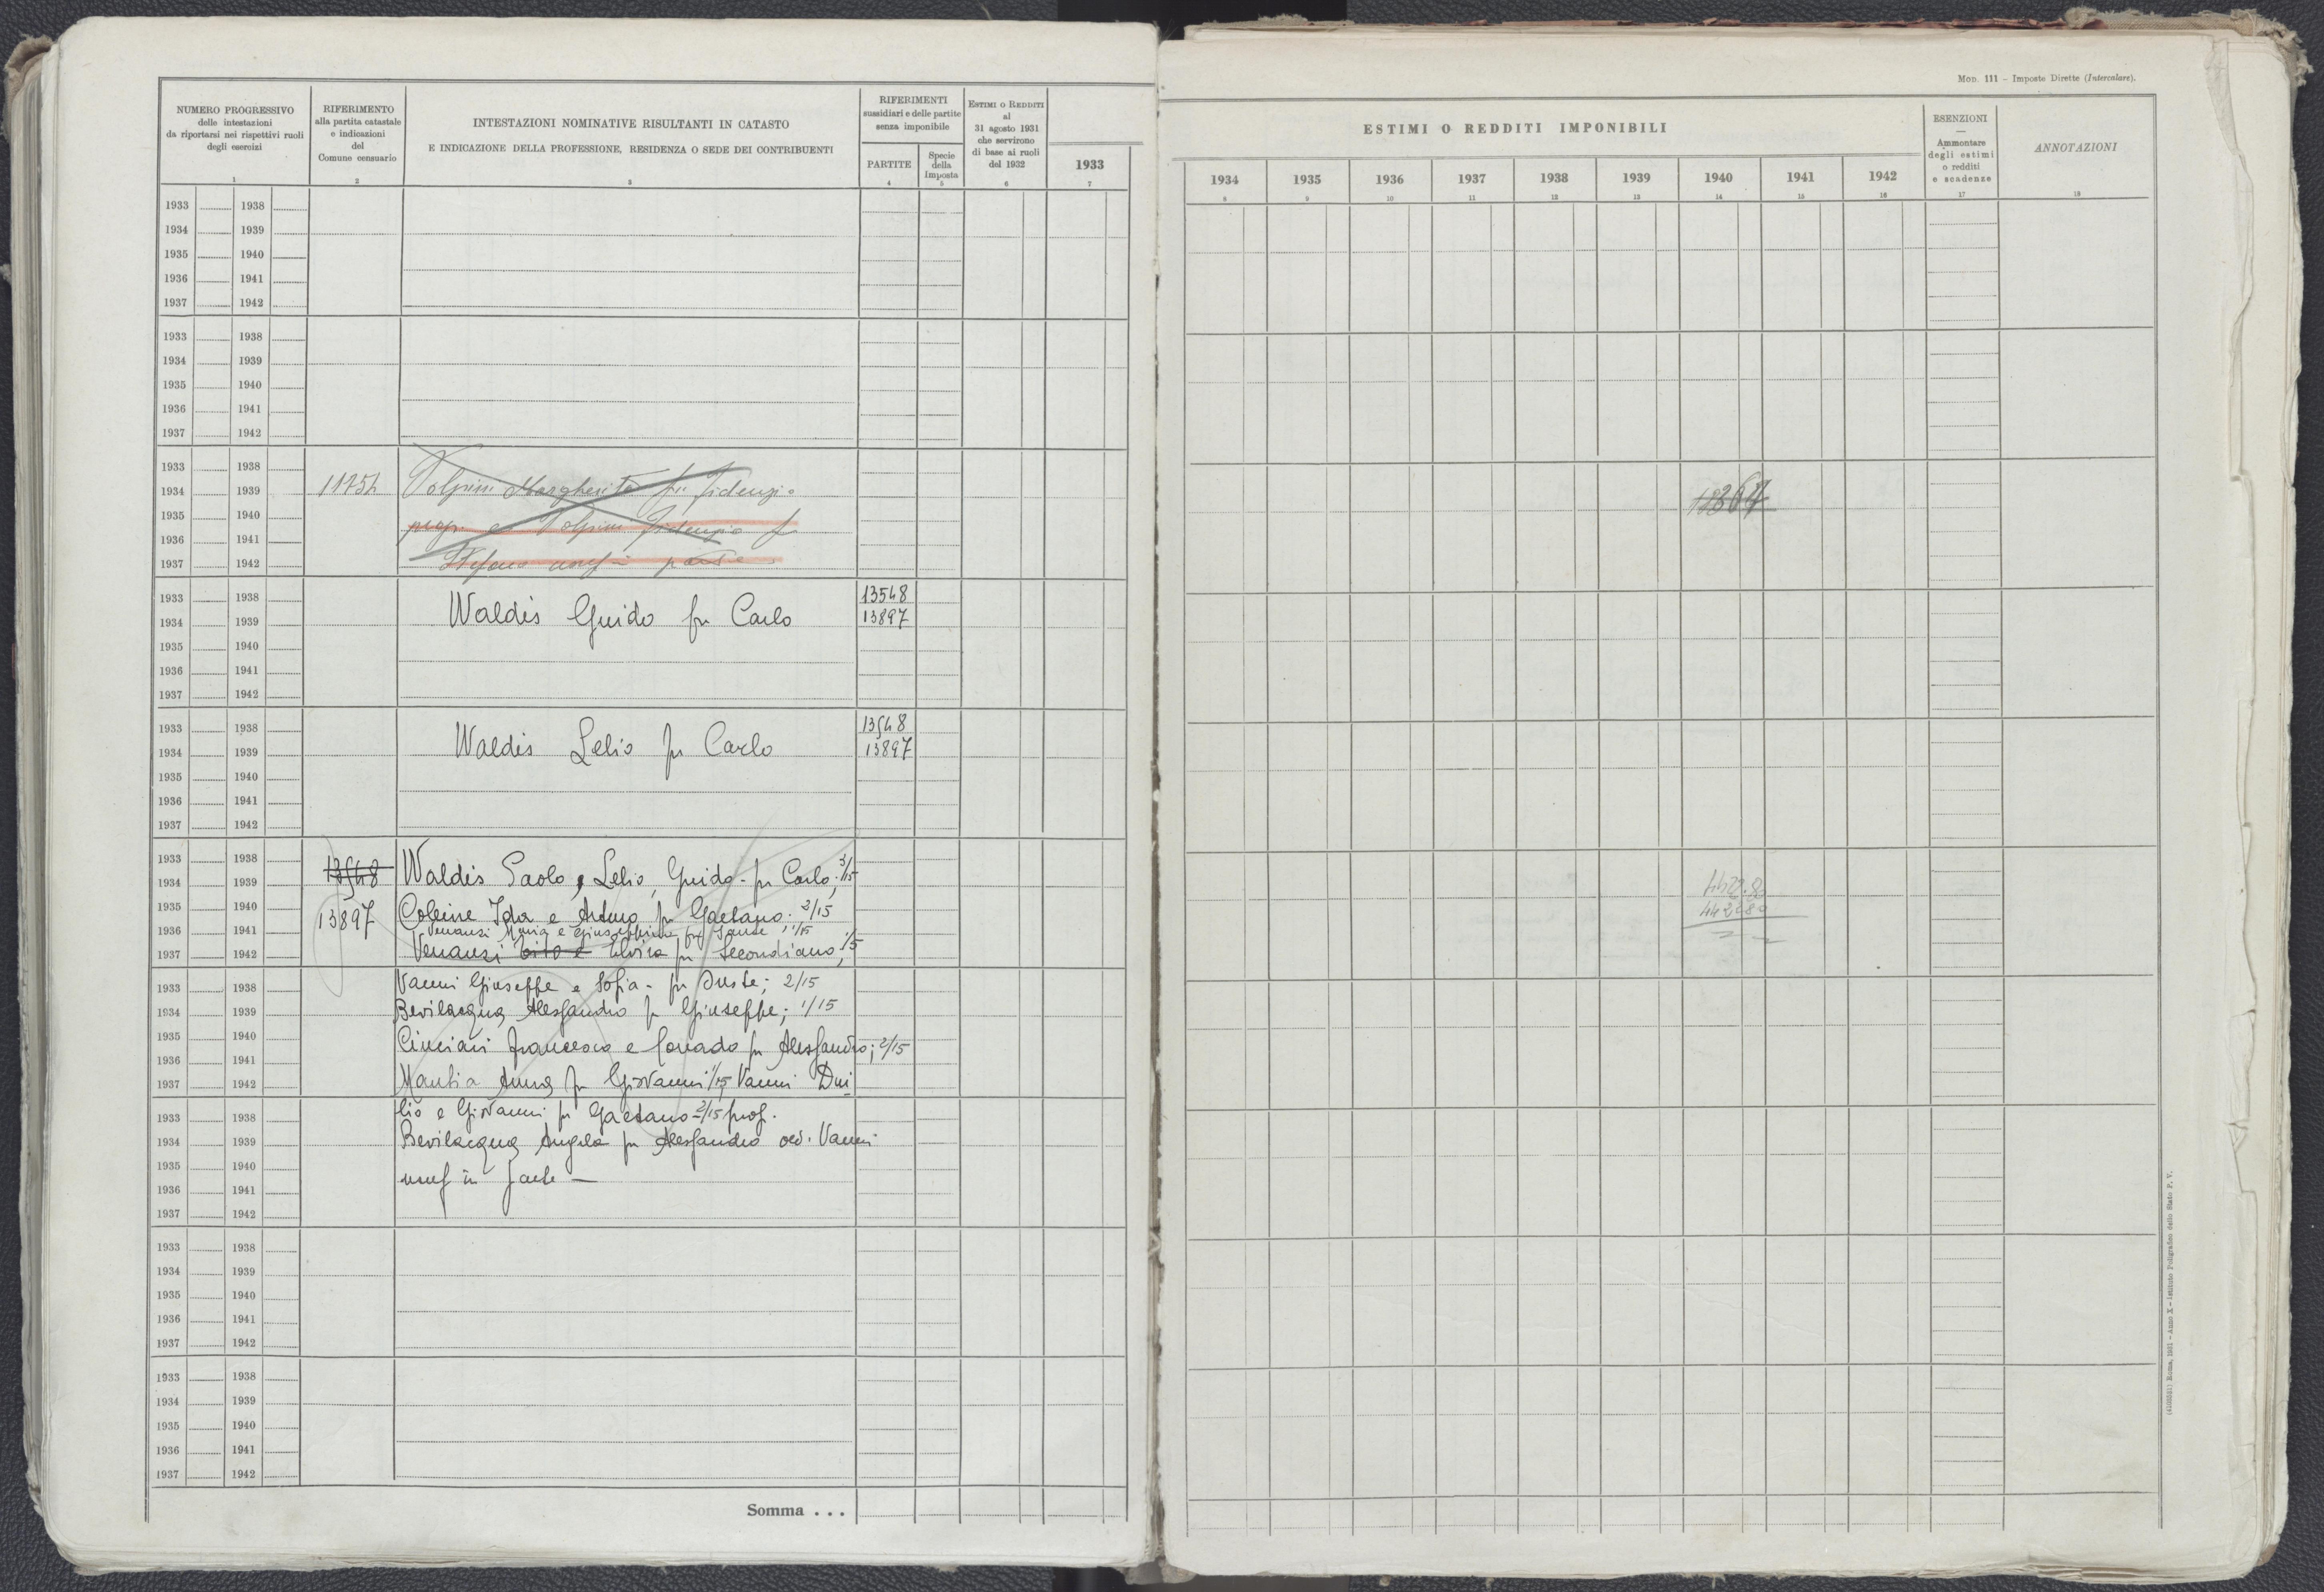 Mod. 111 - Imposte Dirette (Intercalare).
NUMERO PROGRESSIVO
delle intestazioni
da riportarsi nei rispettivi ruoli
degli esercizi
1
RIFERIMENTO
alla partita catastale
e indicazioni
del
Comune censuario
2
INTESTAZIONI NOMINATIVE RISULTANTI IN CATASTO
E INDICAZIONE DELLA PROFESSIONE, RESIDENZA O SEDE DEI CONTRIBUENTI
3
RIFERIMENTI
sussidiari e delle partite
senza imponibile
PARTITE
4
Specie
della
Imposta
5
ESTIMI O REDDITI
al
31 agosto 1931
che servirono
di base ai ruoli
del 1932
6
1933
7
ESTIMI O REDDITI IMPONIBILI
1934 1935 1936 1937 1938 1939 1940 1941 1942
8 9 10 11 12 13 14 15 16
ESENZIONI
—
Ammontare
degli estimi
o redditi
e scadenze
17
ANNOTAZIONI
18
1933 1938
1934 1939
1935 1940
1936 1941
1937 1942
1933 1938
1934 1939
1935 1940
1936 1941
1937 1942
1933 1938
1934 1939 Volpini Margherita fu Fidenzio
1935 1940 prop. e Volpini Fidenzio f
1936 1941
1937 1942 Stefano usuf in parte
1933 1938 13548
1934 1939 Waldis Guido fu Carlo 13897
1935 1940
1936 1941
1937 1942
1933 1938 13548
1934 1939 Waldis Lelio fu Carlo 13897
1935 1940
1936 1941
1937 1942
1933 1938
1934 1939 13548 Waldis Paolo, Lelio, Guido - fu Carlo; 3/15
1935 1940 13897 Ida e Arturo fu Gaetano; 2/15
1936 1941 Venanzi Maria e Giuseppina fu 1/15
1937 1942 Venanzi Elvira fu Secondiano; 1/15
1933 1938 Vanni Giuseppe e Sofia - fu 2/15
1934 1939 Bevilacqua Alessandro fu Giuseppe; 1/15
1935 1940 Cinciari Francesco e Corrado fu Alessandro; 2/15
1936 1941
1937 1942 Mantia Anna fu Giovanni 1/15 Vanni Dui
1933 1938 lio e Giovanni fu Gaetano - 2/15 prop.
1934 1939 Bevilacqua Angela fu Alessandro ved. Vanni
1935 1940
1936 1941 usuf in parte —
1937 1942
1933 1938
1934 1939
1935 1940
1936 1941
1937 1942
1933 1938
1934 1939
1935 1940
1936 1941
1937 1942
Somma . . .
Roma, 1931 - Anno X - Istituto Poligrafico dello Stato P. V.